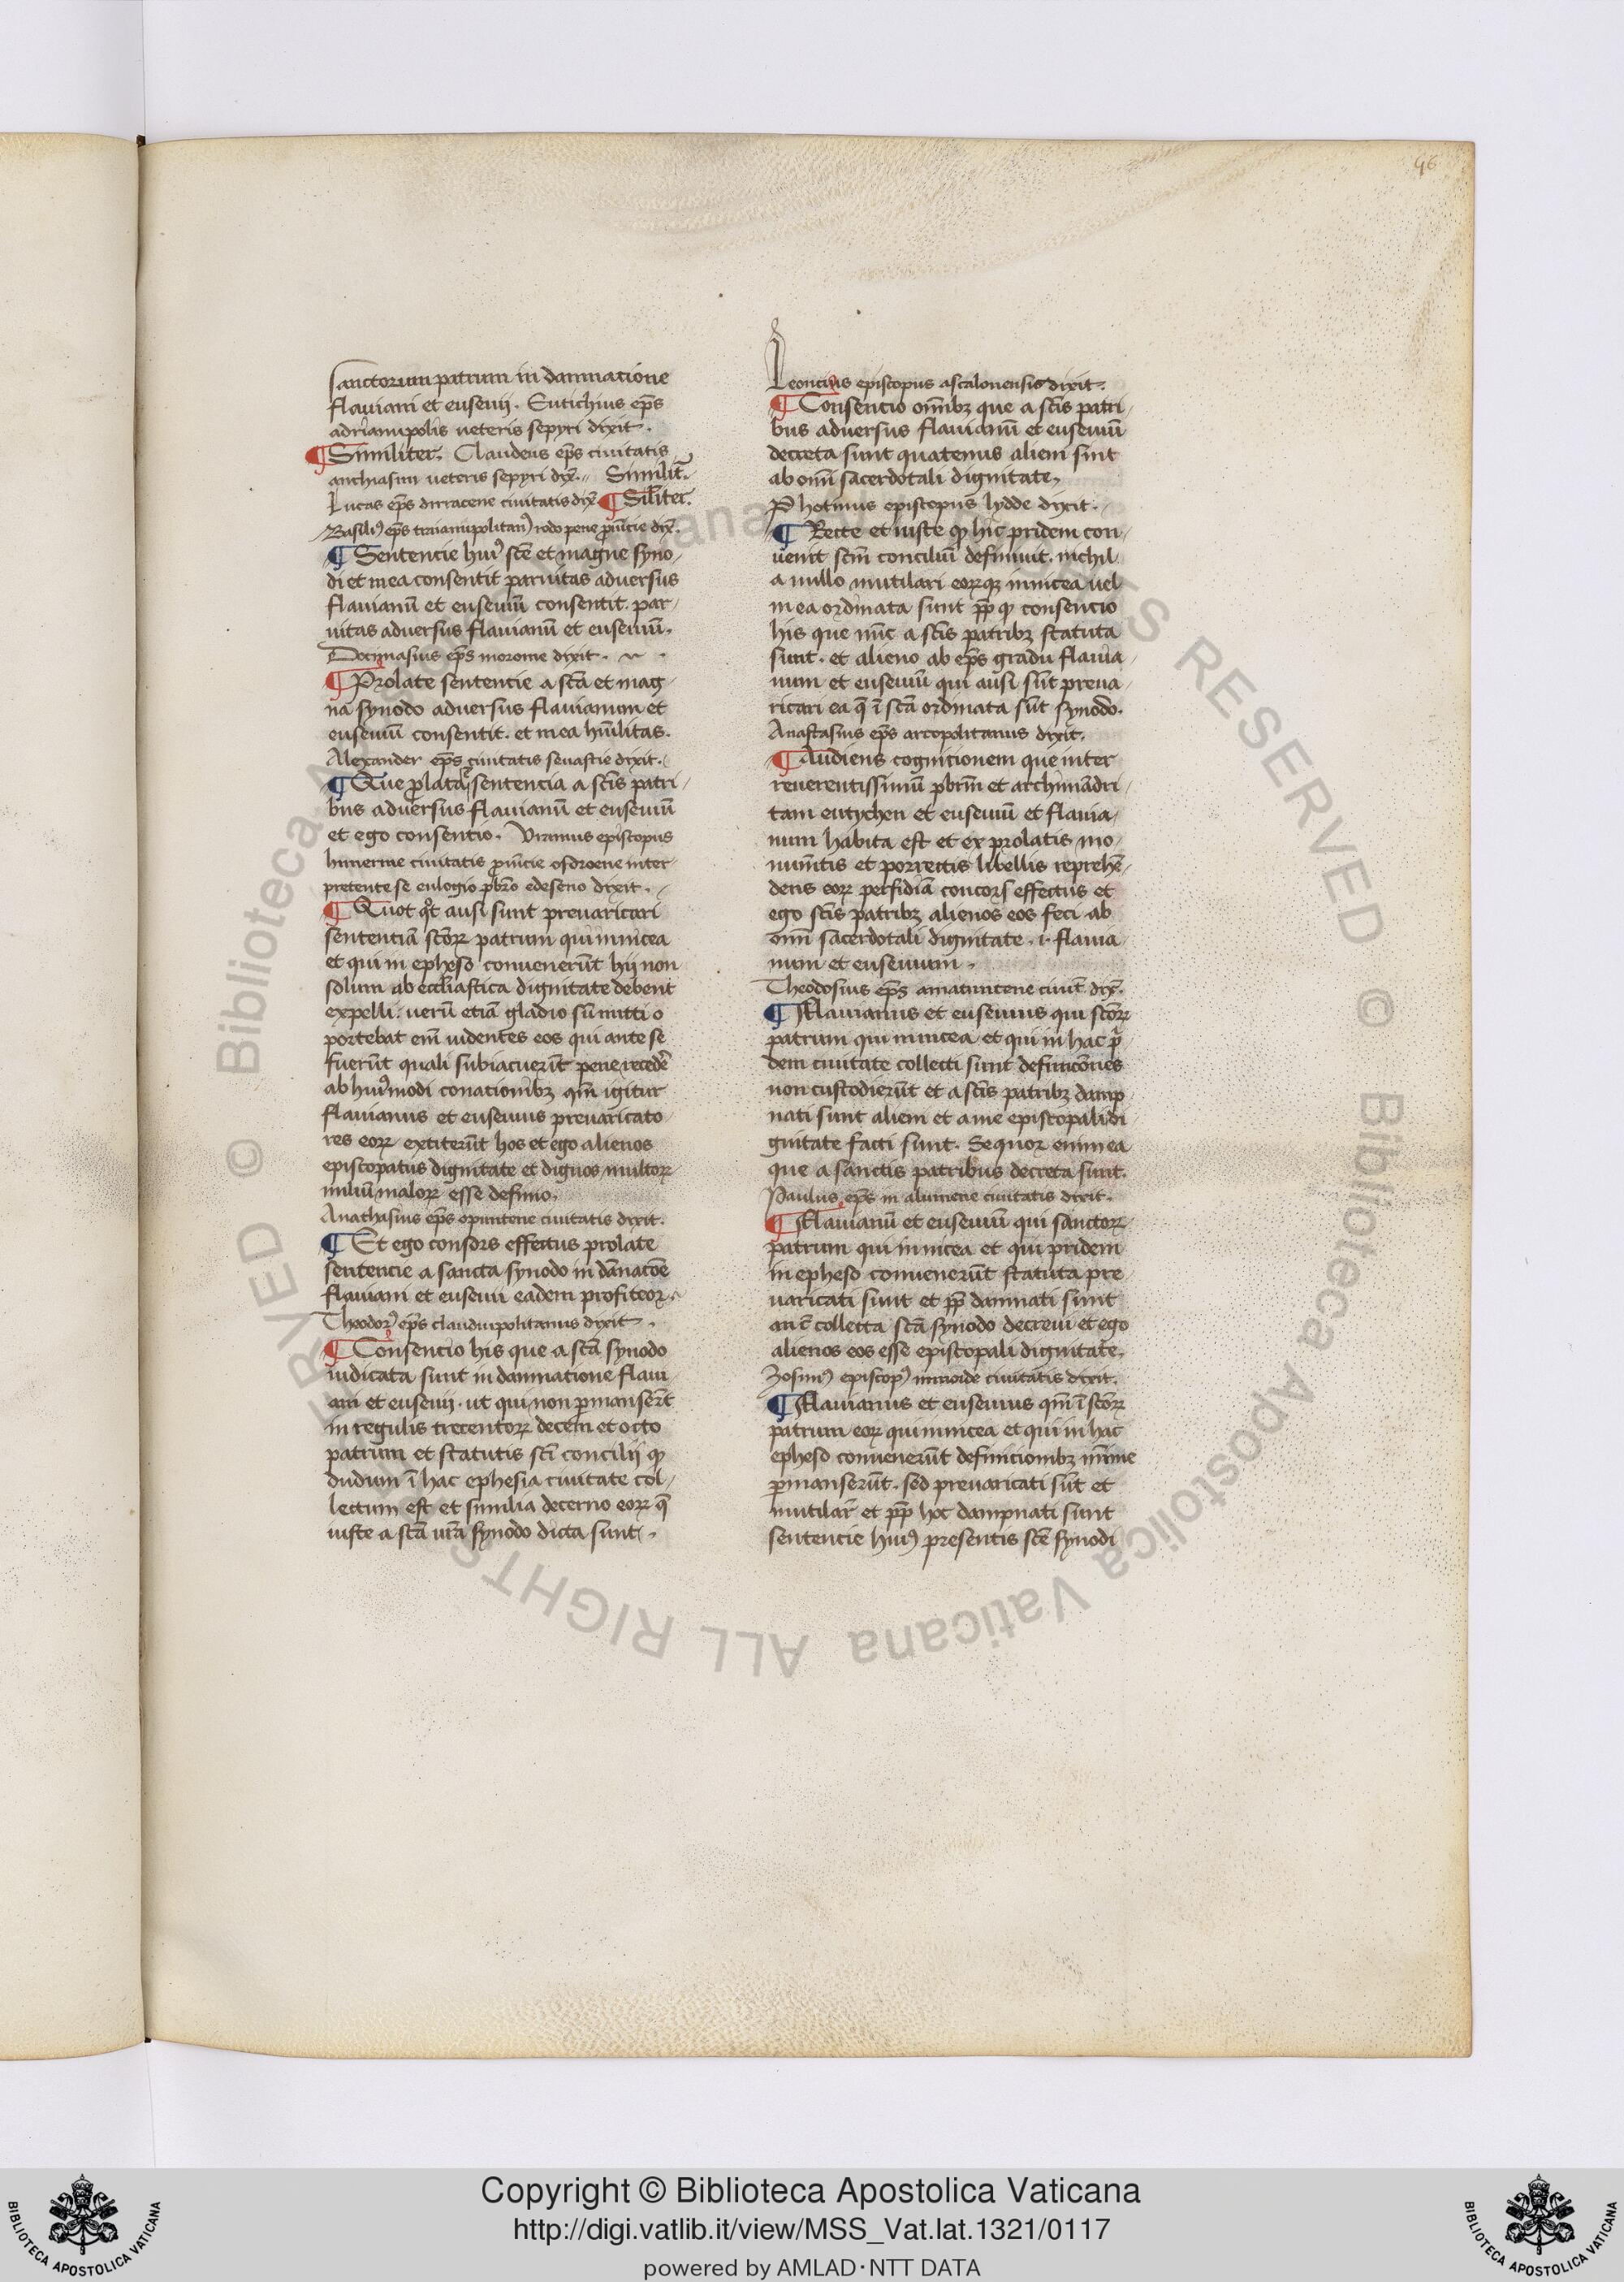 46
sanctorum patrum in damnacione
flauiani et euseuij. Eutichius ep̄s
adrianupolis ueteris sepyri dixit.
¶ Similiter. Claudeus ep̄s ciuitatis
anchiasim ueteris sepyri dix̄. Similit̄.
Lucas ep̄s dirracene ciuitatis dix̄ ¶ Sil̄iter.
Basiliꝰ ep̄s traianupolitanꝰ rodopene ꝓuīcie dix̄.
¶ Sentencie huiꝰ sc̄e et magne syno
di et mea consentit paruitas aduersus
flauianū et euseuiū consentit. par
uitas aduersus flauianū et euseuiū.
Docimasius ep̄s moronie dixit.
¶ Prolate sentencie a sc̄a et mag
na synodo aduersus flauianum et
euseuiū consentit. et mea hūilitas.
Alexander ep̄s ciuitatis seuastie dixit.
¶ Que ꝓlata sentencia a sc̄is patri
bus aduersus flauianū et euseuiū
et ego consentio. Uranius episcopus
himerine ciuitatis ꝓuīcie osdroene inter
pretente se eulogio pb̄ro edeseno dixit.
¶ Quotqͦt ausi sunt preuaricari
sententiā sc̄oꝝ patrum qui in nicea
et qui in epheso conuenerūt hij non
solum ab eccl̄iastica dignitate debent
expelli. uerū etiā gladio sūmitti o
portebat em̄ uidentes eos qui ante se
fuerūt quali subiacuerūt pene recede᷑
ab huiꝰmodi conacionibꝫ qm̄ igitur
flauianus et euseuius preuaricato
res eoꝝ extiterūt hos et ego alienos
episcopatus dignitate et dignos multoꝝ
miliū maloꝝ esse definio.
Anathasius ep̄s opuntene ciuitatis dixit.
¶ Et ego consors effectus prolate
sentencie a sancta synodo in dānacōe
flauiani et euseuii eadem profiteor.
Theodorꝰ ep̄s claudiupolitanus dixit.
¶ Consencio his que a sc̄a synodo
iudicata sunt in damnatione flaui
ani et euseuij. ut qui non ꝑmanser̄t
in regulis trecentoꝝ decem et octo
patrum et statutis sc̄i concilij qͥ
dudum ī hac ephesia ciuitate col
lectum est et similia decerno eoꝝ q̄
iuste a sc̄a ur̄a synodo dicta sunt.
Leoncius episcopus ascalonensis dixit.
¶ Consencio om̄ibꝫ que a sc̄is patri
bus aduersus flauianū et euseuiū
decreta sunt quatenus alieni sint
ab om̄i sacerdotali dignitate.
Photinus episcopus lydde dixit.
¶ Recte et iuste qͥ hic pridem con
uenit sc̄m conciliū definiuit. nichil
a nullo mutilari eoꝝqꝫ in nicea uel
in ea ordinata sunt ꝓp̄ qͥ consencio
his que nūc a sc̄is patribꝫ statuta
sunt. et alieno ab ep̄s gradu flauia
num et euseuiū qui ausi sūt preua
ricari ea q̄ ī sc̄a ordinata sūt synodo.
Anastasius ep̄s arcopolitanus dixit.
¶ Audiens cognitionem que inter
reuerentissimū pb̄rm̄ et archimādri
tam eutychen et euseuiū et flauia
num habita est et ex prolatis mo
numētis et porrectis libellis reprehē
dens eoꝝ perfidiā concors effectus et
ego sc̄is patribꝫ alienos eos feci ab
om̄i sacerdotali dignitate. i. flauia
num et euseuium.
Theodosius ep̄s amatuntene ciuit̄ dix̄.
¶ Flauianus et euseuius qui sc̄oꝝ
patrum qui in nicea et qui in hac p̄
dem ciuitate collecti sunt definicōnes
non custodierūt et a sc̄is patribꝫ damp
nati sunt alieni et a me episcopali di
gnitate facti sunt. Sequor enim ea
que a sanctis patribus decreta sunt.
Paulus ep̄s in alumene ciuitatis dixit.
¶ Flauianū et euseuiū qui sanctoꝝ
patrum qui in nicea et qui pridem
in epheso conuenerūt statuta pre
uaricati sunt et ꝓp̄ damnati sunt
an̄c̄ collecta sc̄a synodo decreui et ego
alienos eos esse episcopali dignitate.
Zosimꝰ episcopꝰ minoide ciuitatis dixit.
¶ Flauianus et euseuius qm̄ ī sc̄oꝝ
patrum eoꝝ qui in nicea et qui in hac
epheso conuenerūt definicionibꝫ mīme
ꝑmanserūt. sed preuaricati sūt et
mutilar̄ et ꝓp̄ hoc dampnati sunt
sentencie huiꝰ presentis sc̄e synodi
© Biblioteca Apostolica Vaticana ALL RIGHTS RESERVED
© Biblioteca Apostolica Vaticana ALL RIGHTS RESERVED
Copyright © Biblioteca Apostolica Vaticana
http://digi.vatlib.it/view/MSS_Vat.lat.1321/0117
powered by AMLAD·NTT DATA
BIBLIOTECA APOSTOLICA VATICANA
BIBLIOTECA APOSTOLICA VATICANA